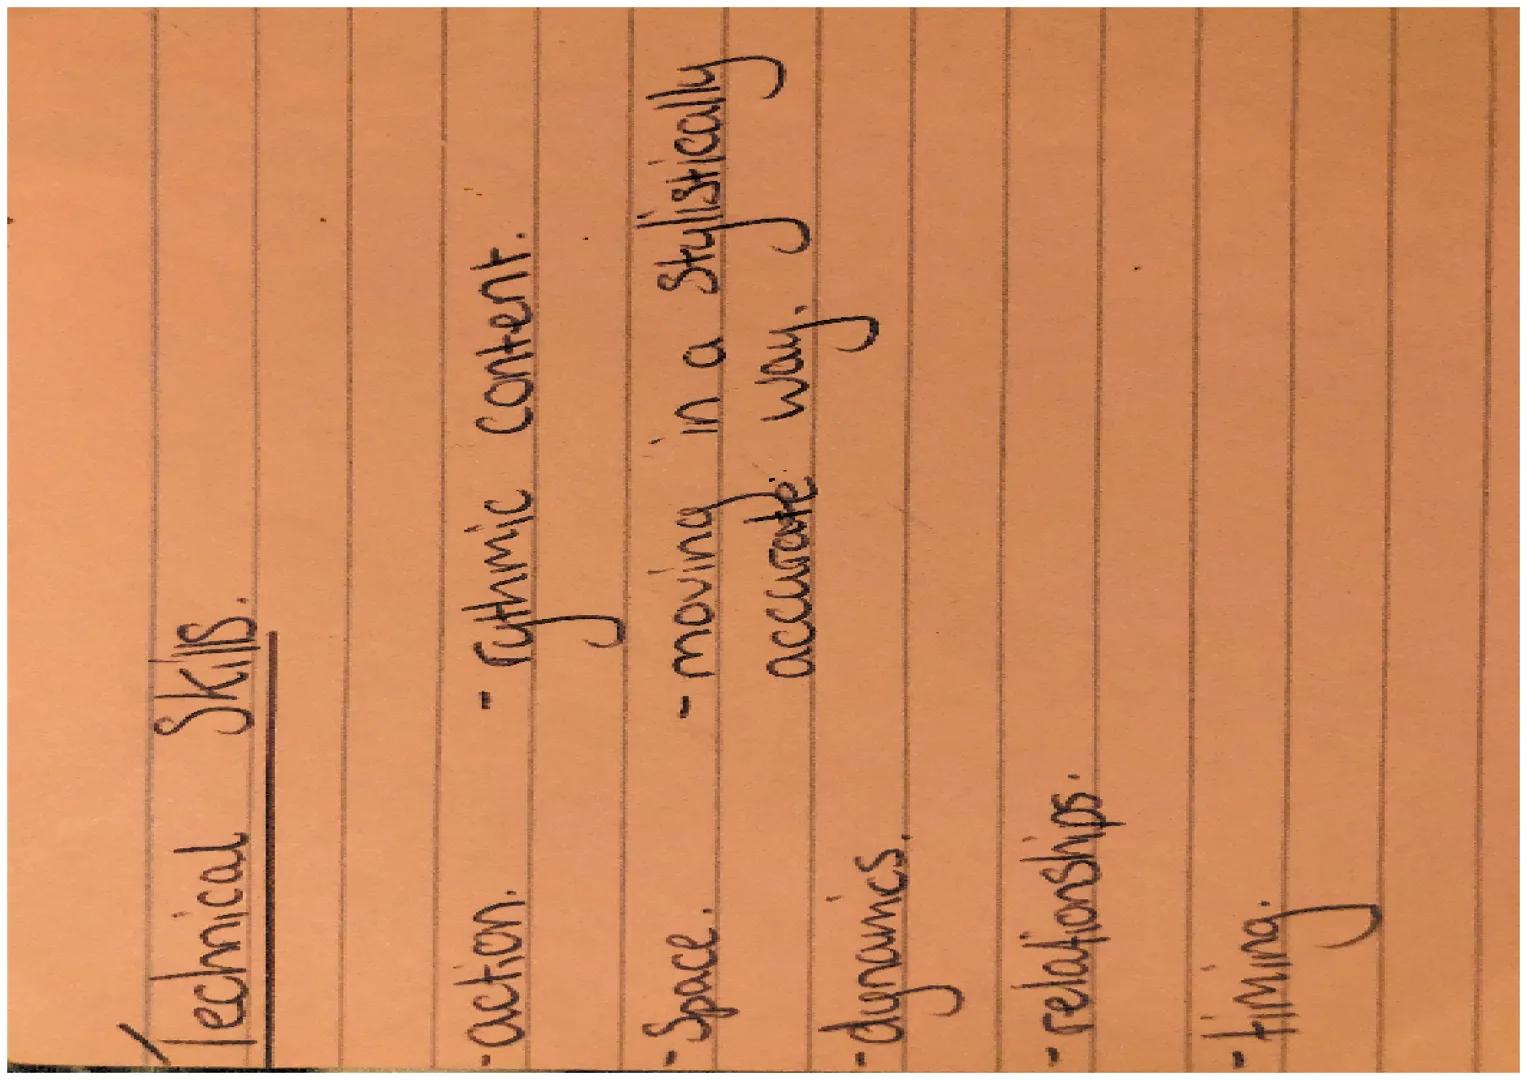 Technical Skills.
- action. - rythmic content.
- Space. - moving in a Stylistically
accurate way.
- dynamics.
- relationships.
- timing.